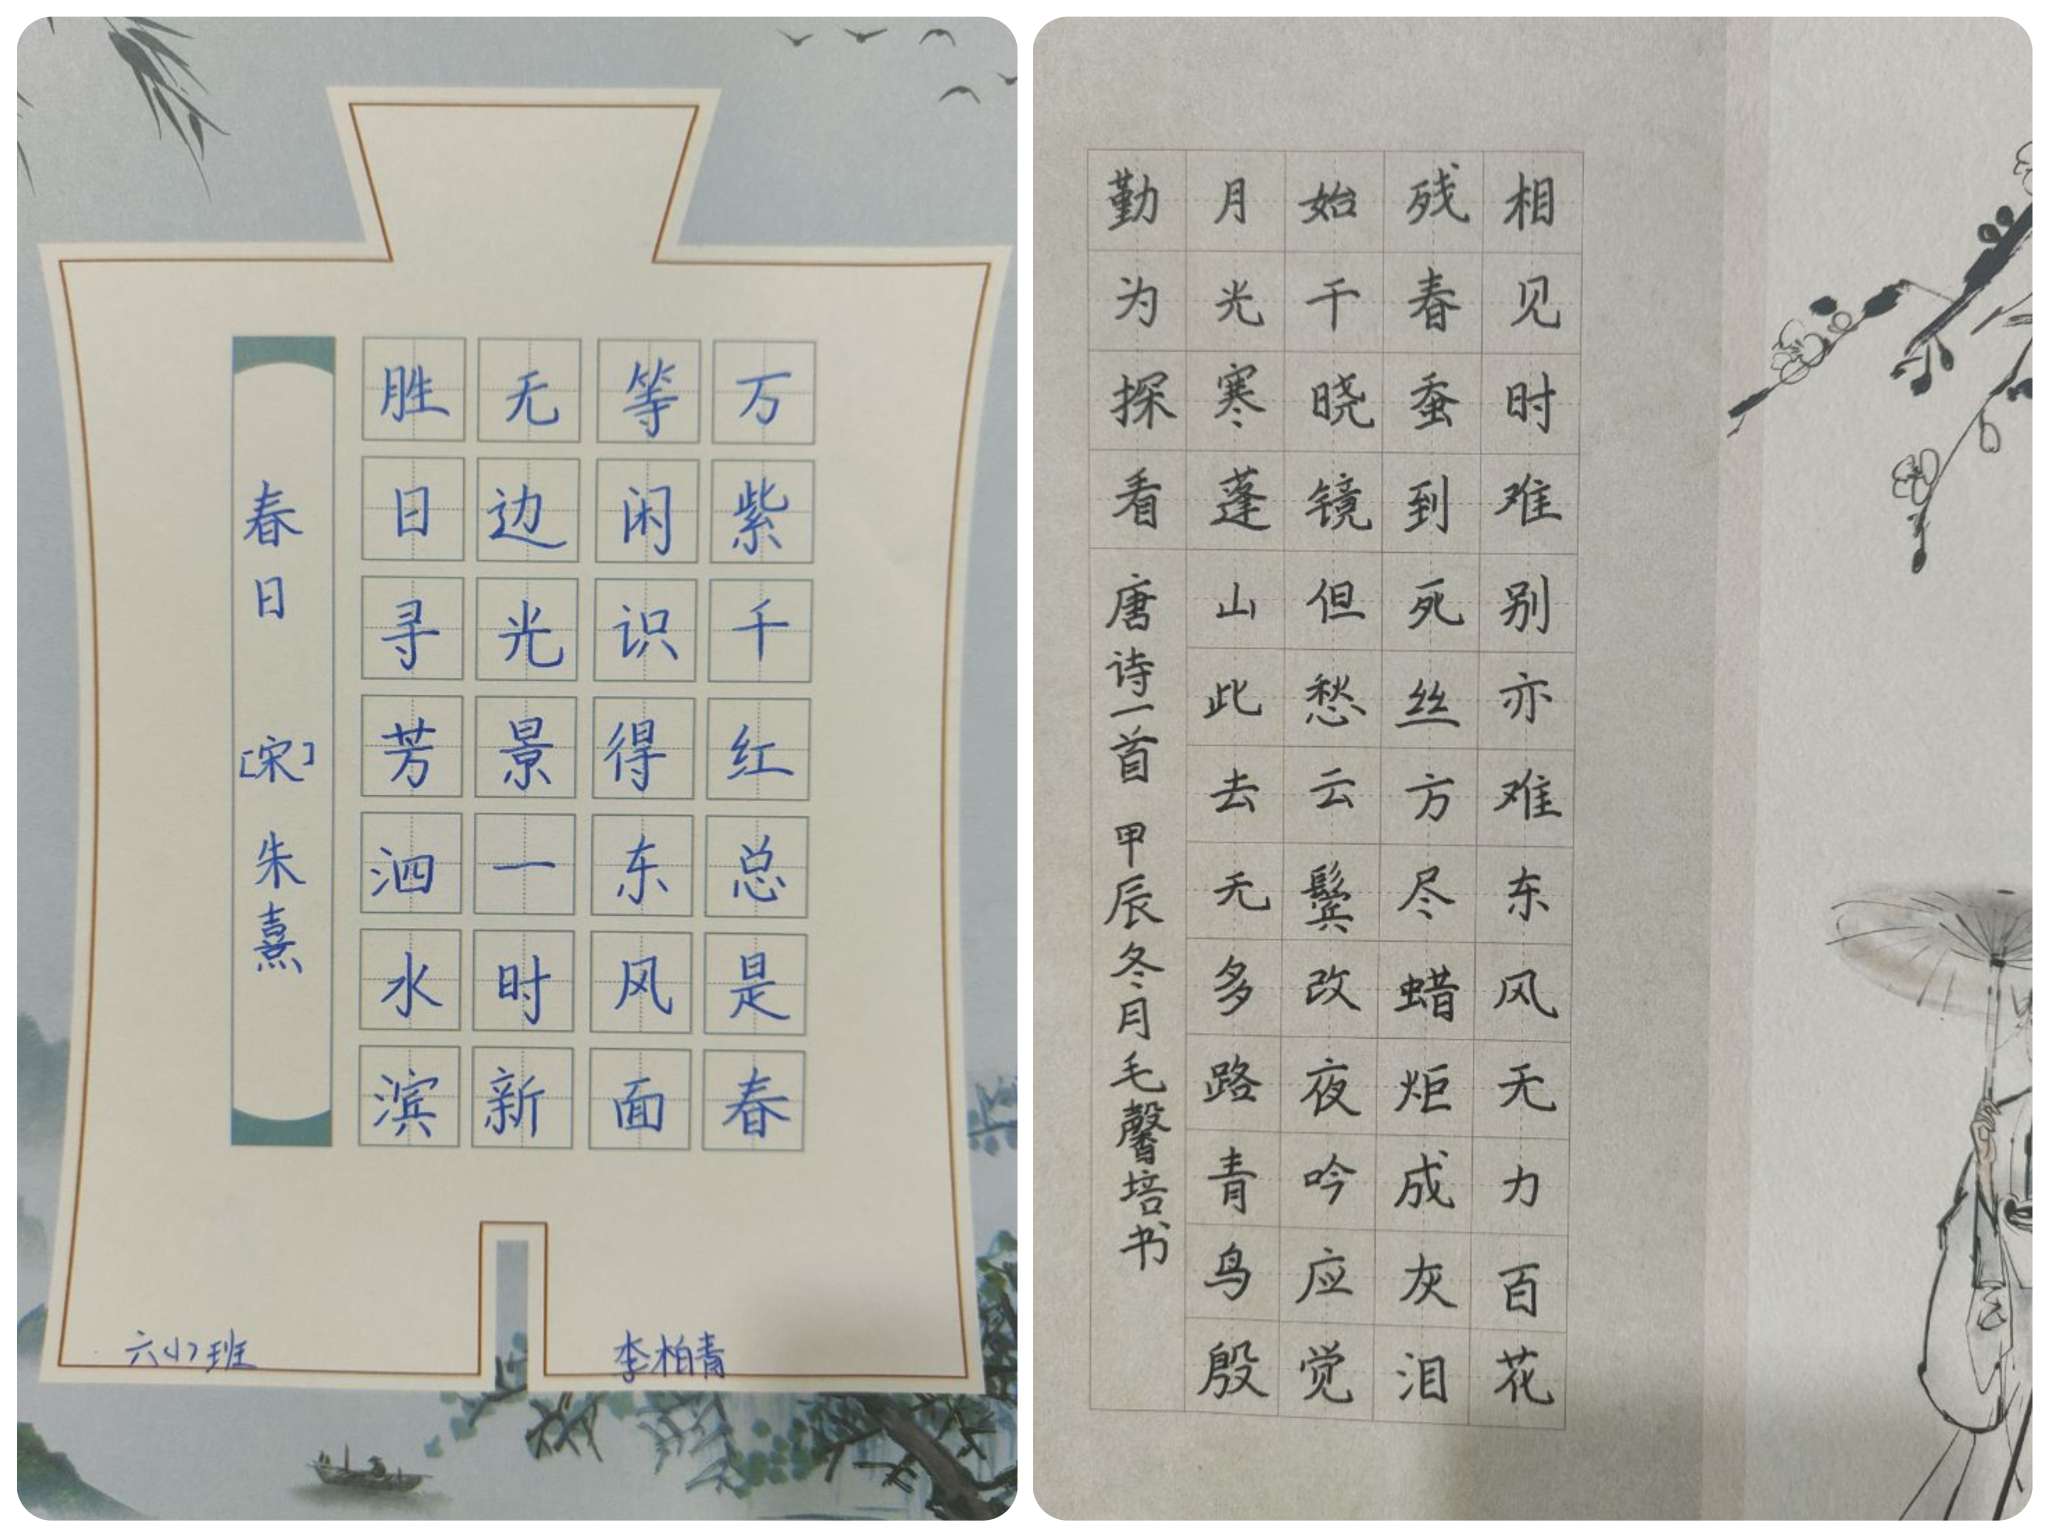 春日 [宋] 朱熹
胜日寻芳泗水滨
无边光景一时新
等闲识得东风面
万紫千红总是春
李柏青
相见时难别亦难东风无力百花
残春蚕到死丝方尽蜡炬成灰泪
始干晓镜但愁云鬓改夜吟应觉
月光寒蓬山此去无多路青鸟殷
勤为探看 唐诗一首 甲辰冬月毛馨培书